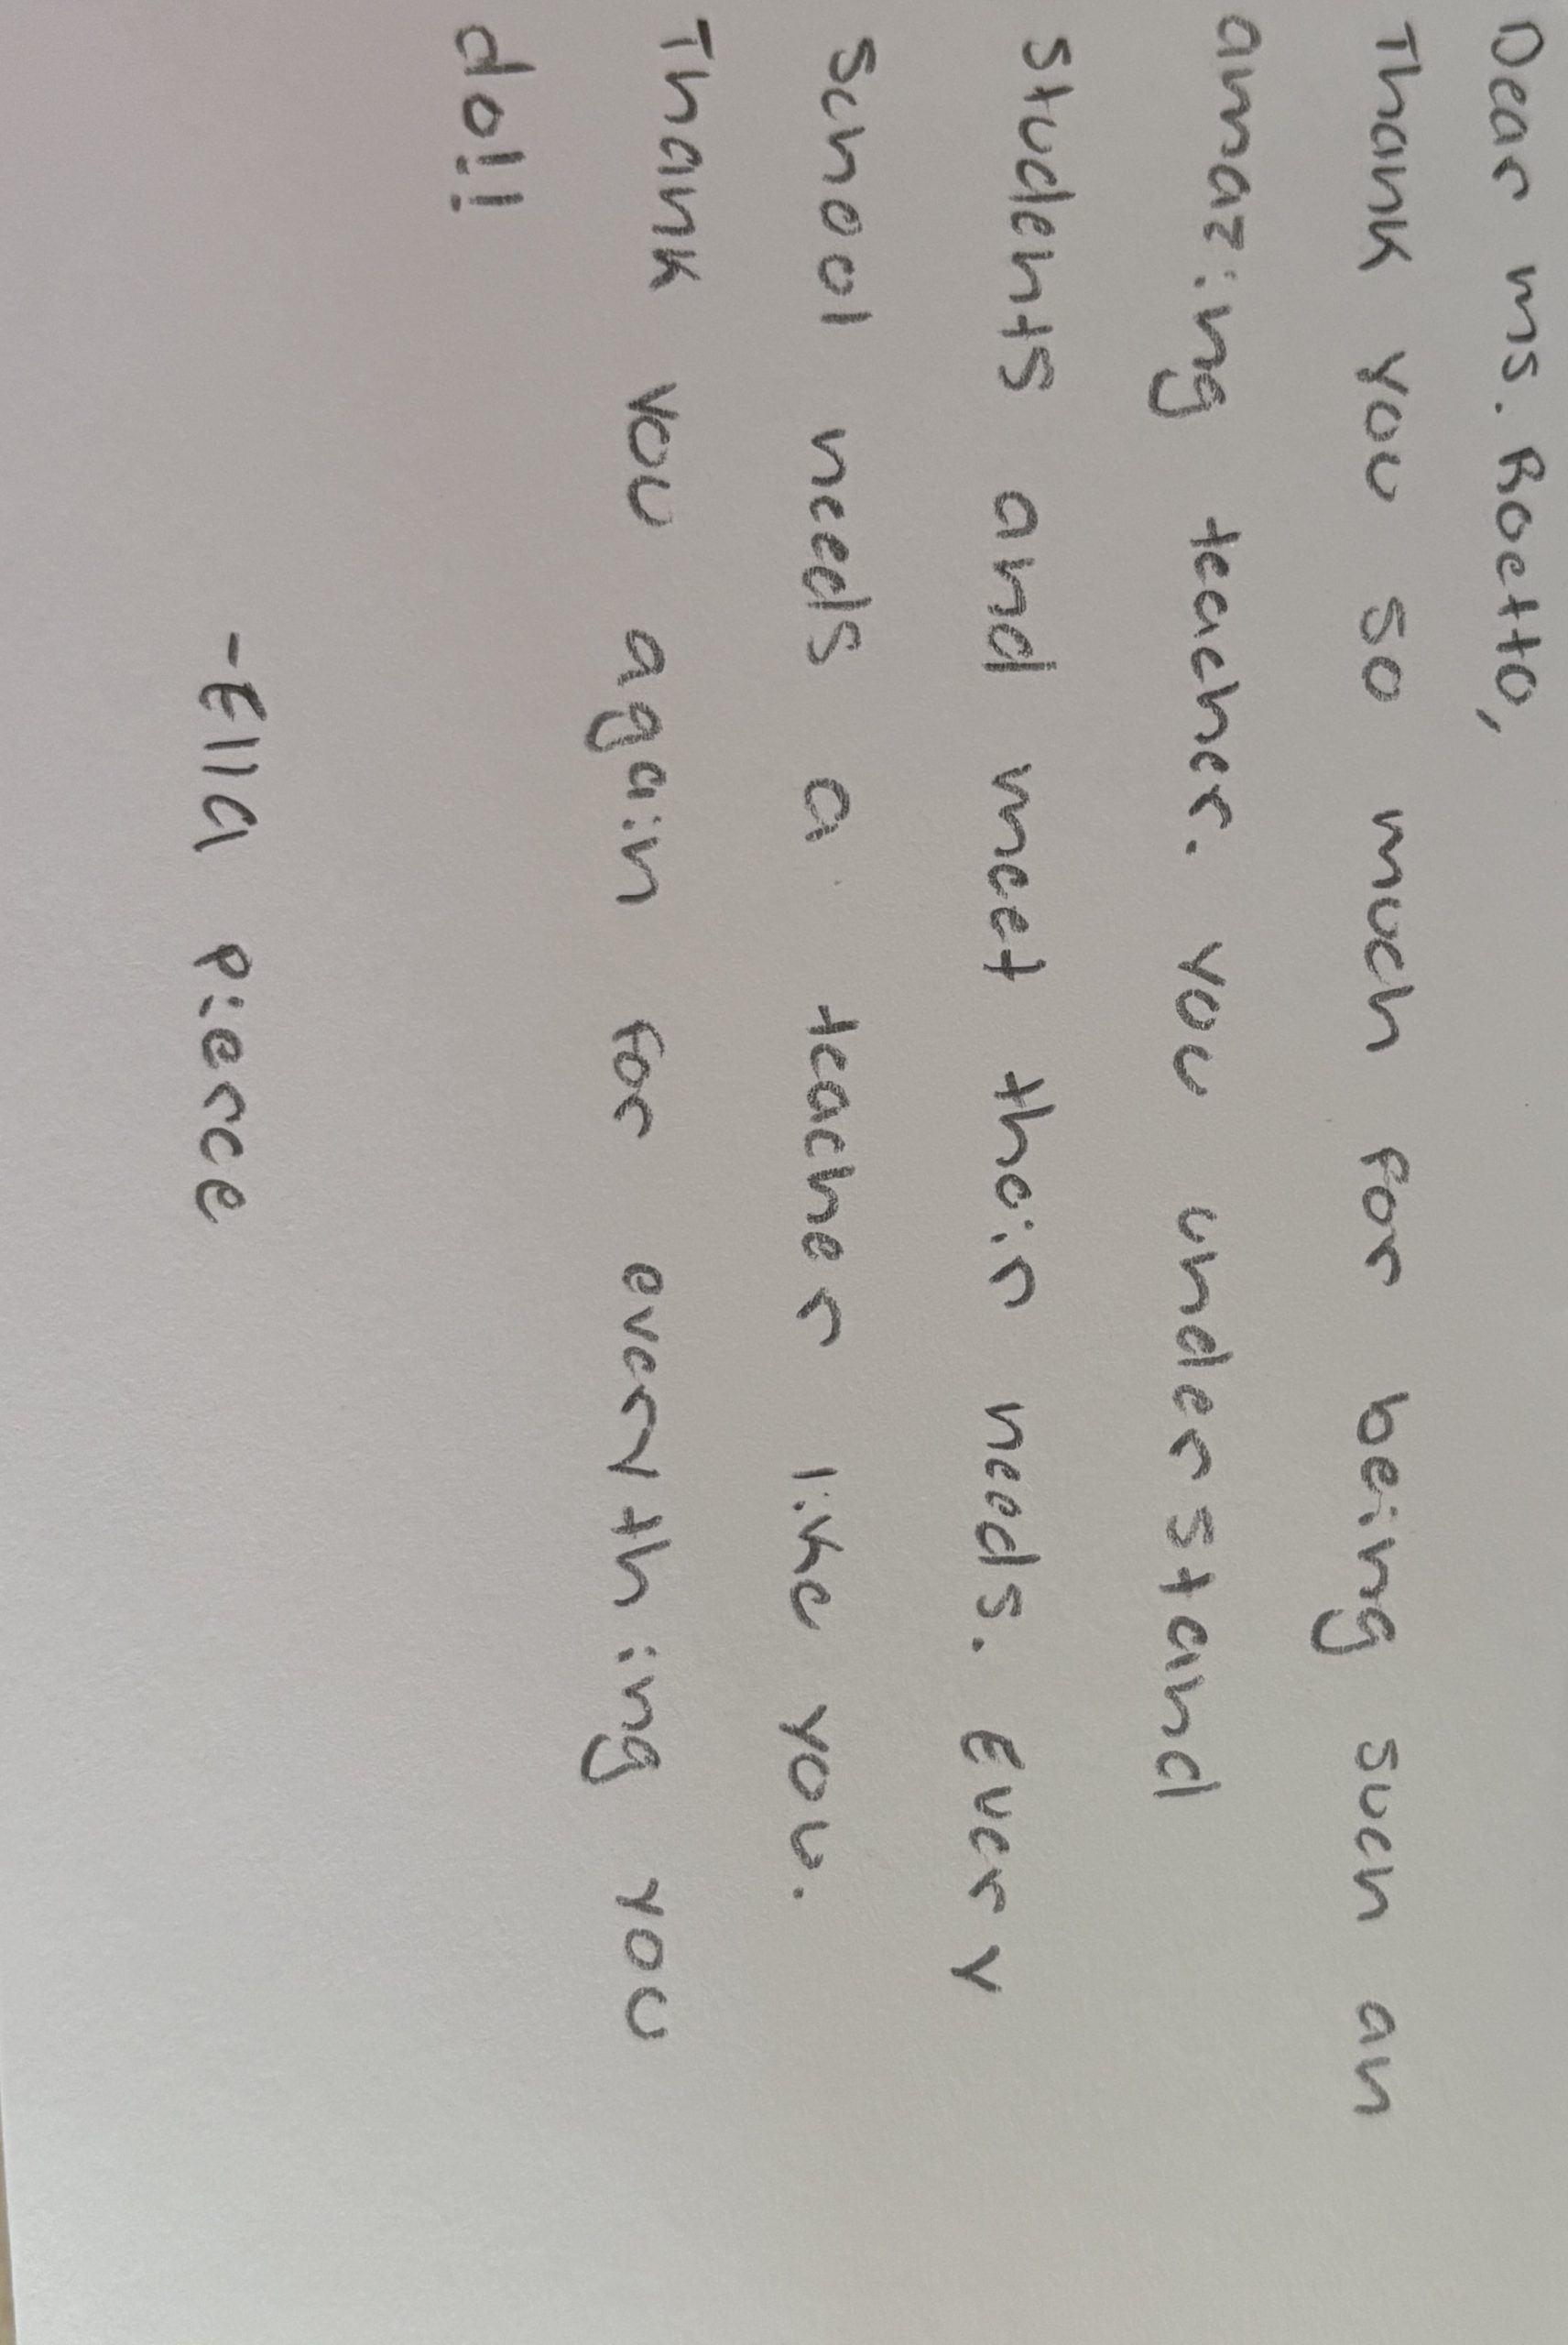 Dear ms. Boetto,
Thank you so much for being such an
amazing teacher. You understand
students and meet their needs. Every
school needs a teacher like you.
Thank you again for everything you
do!!
-Ella pierce